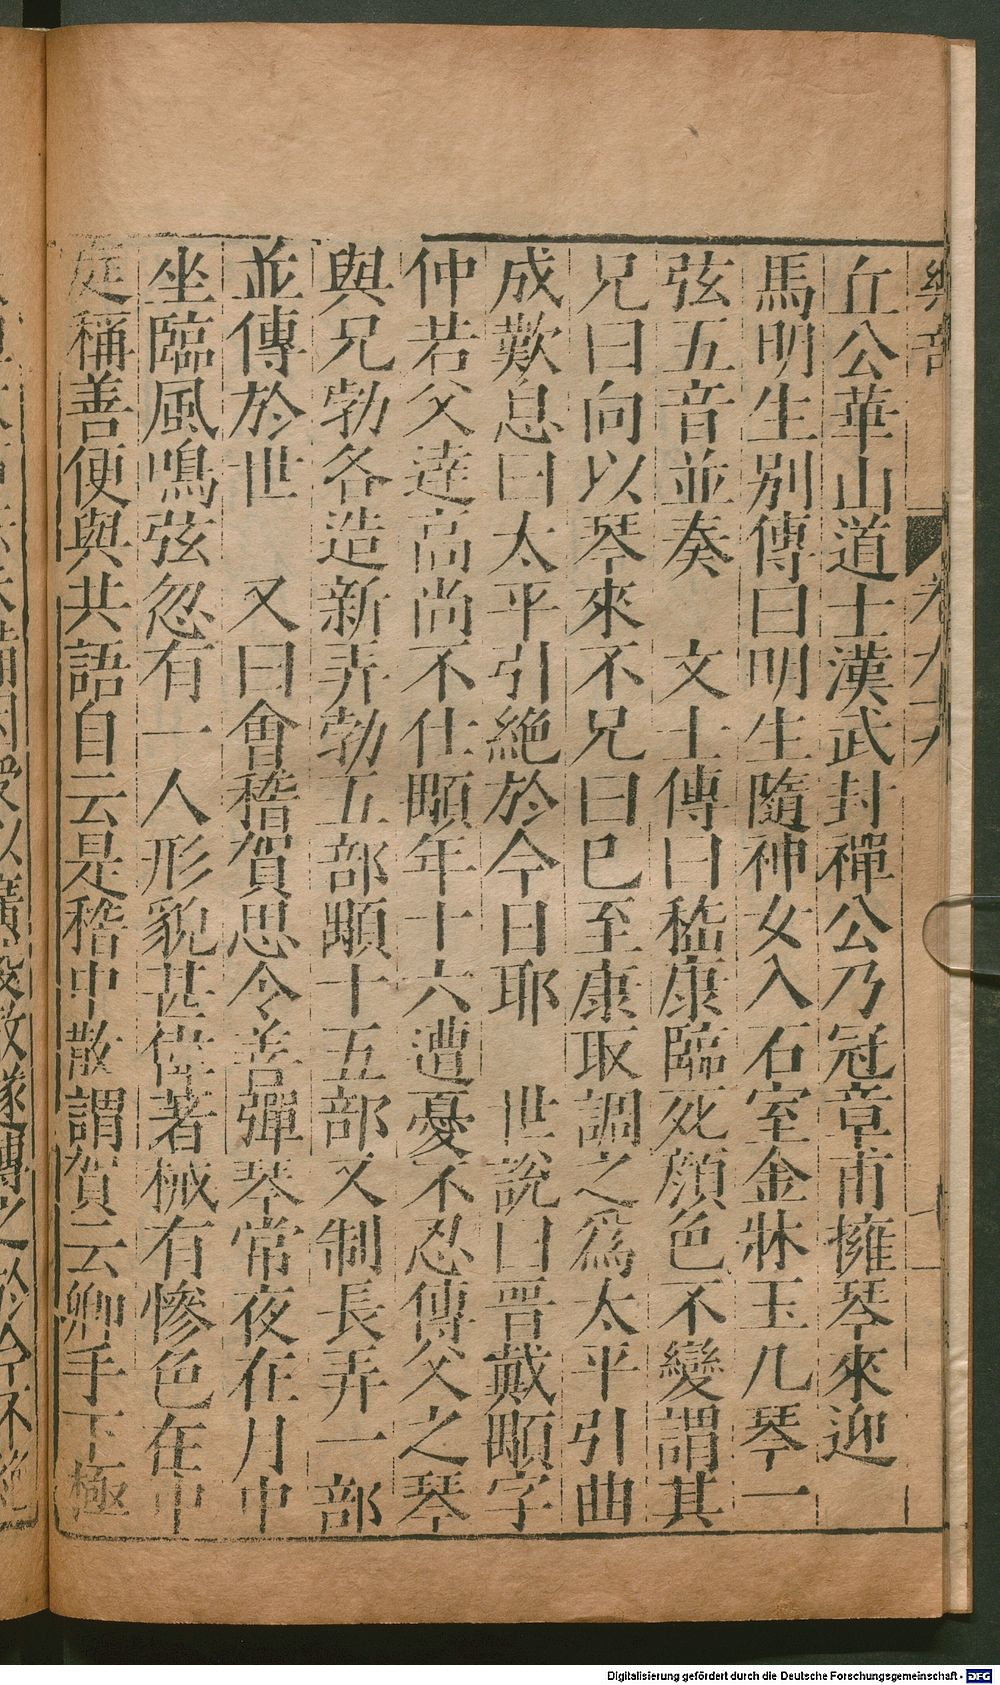 丘公華山道士漢武封禪公乃冠章甫擁琴來迎
馬明生別傳曰明生隨神女入石室金牀玉几琴一
弦五音並奏　文士傳曰嵇康臨死顏色不變謂其
兄曰向以琴來不兄曰巳至康取調之爲太平引曲
成歎息曰太平引絶於今日耶　世說曰晉戴顒字
仲若父逹高尚不仕顒年十六遭憂不忍傳父之琴
與兄勃各造新弄勃五部顒十五部又制長弄一部
並傳於世　又曰會稽賀思令善彈琴常夜在月中
坐臨風鳴弦忽有一人形貌甚偉著械有慘色在中
庭稱善便與共語自云是稽中散謂賀云卿手下極
Digitalisierung gefördert durch die Deutsche Forschungsgemeinschaft - DFG